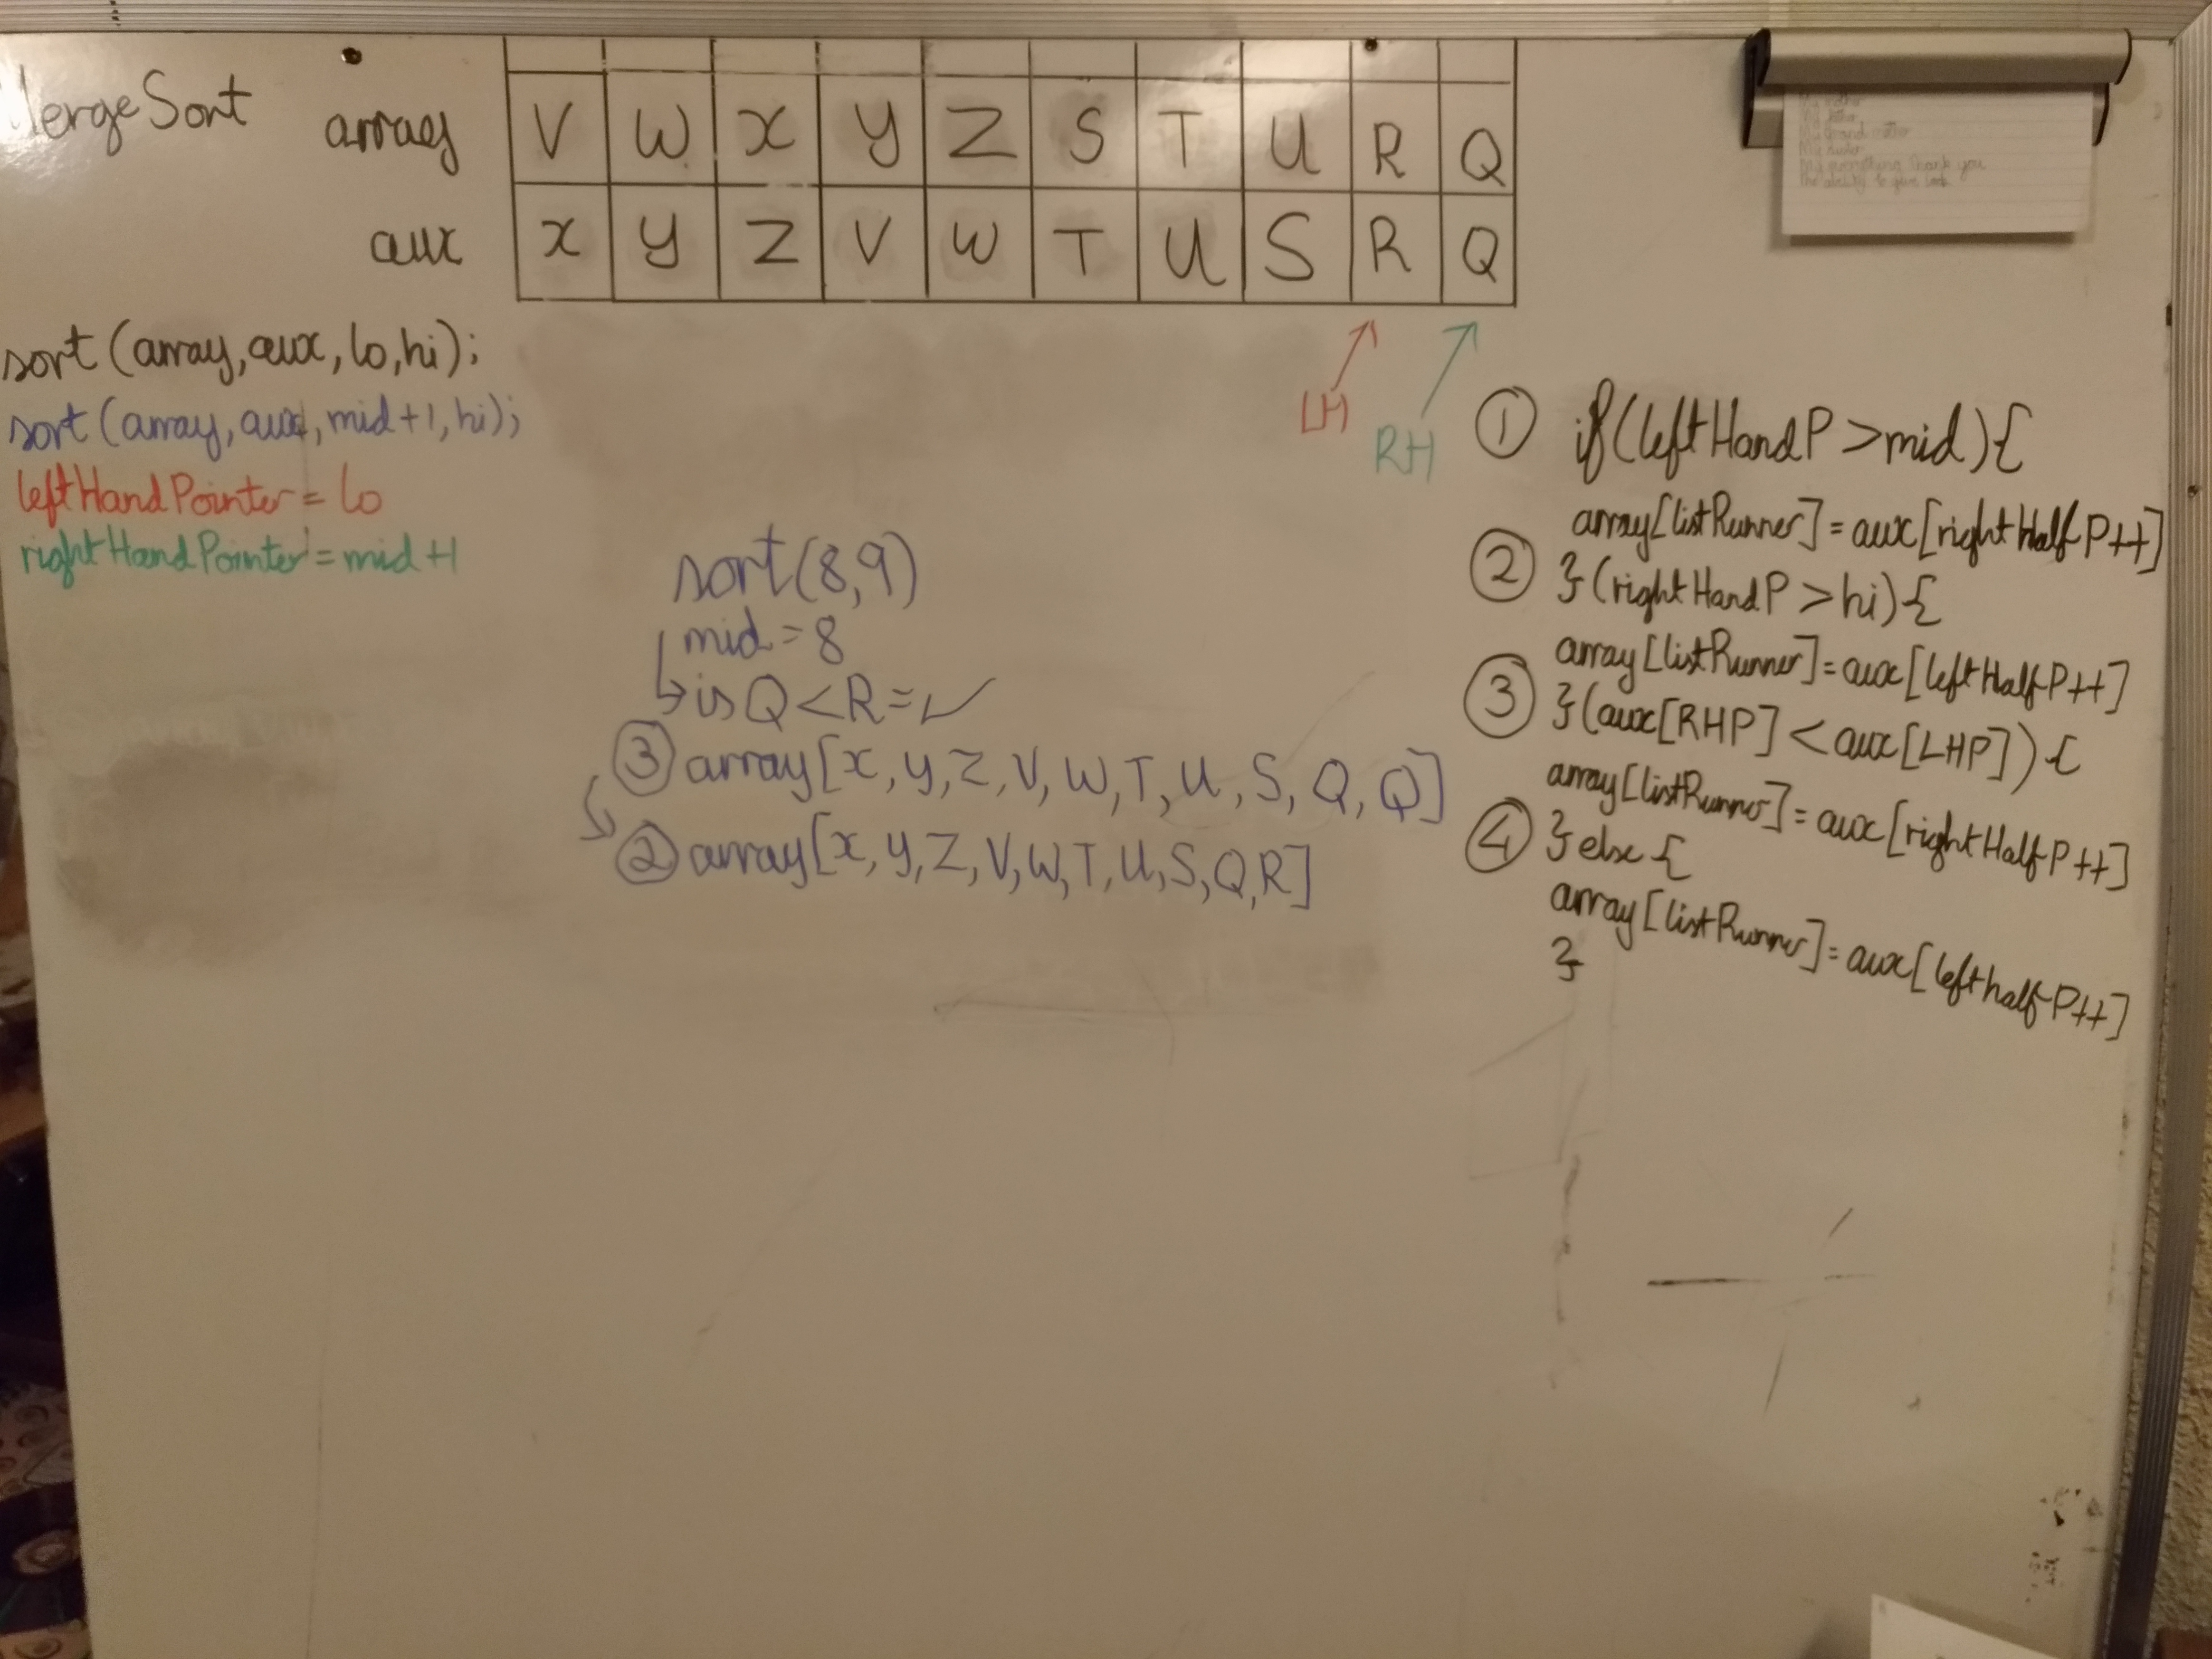 MergeSort
array V W X Y Z S T U R Q
aux X Y Z V W T U S R Q
sort (array, aux, lo, hi);
sort (array, aux, mid+1, hi);
leftHandPointer = lo
rightHandPointer = mid+1
LH
RH
sort(8,9)
mid = 8
is Q < R = ✓
③ array[X, Y, Z, V, W, T, U, S, Q, Q]
② array[X, Y, Z, V, W, T, U, S, Q, R]
① if(leftHandP > mid){
array[listRunner] = aux[rightHalfP++]
② }(rightHandP > hi){
array[listRunner] = aux[leftHalfP++]
③ }(aux[RHP] < aux[LHP]){
array[listRunner] = aux[rightHalfP++]
④ }else{
array[listRunner] = aux[lefthalfP++]
}
My
My
My Grand
My sister
My everything Thank you
The ability to give